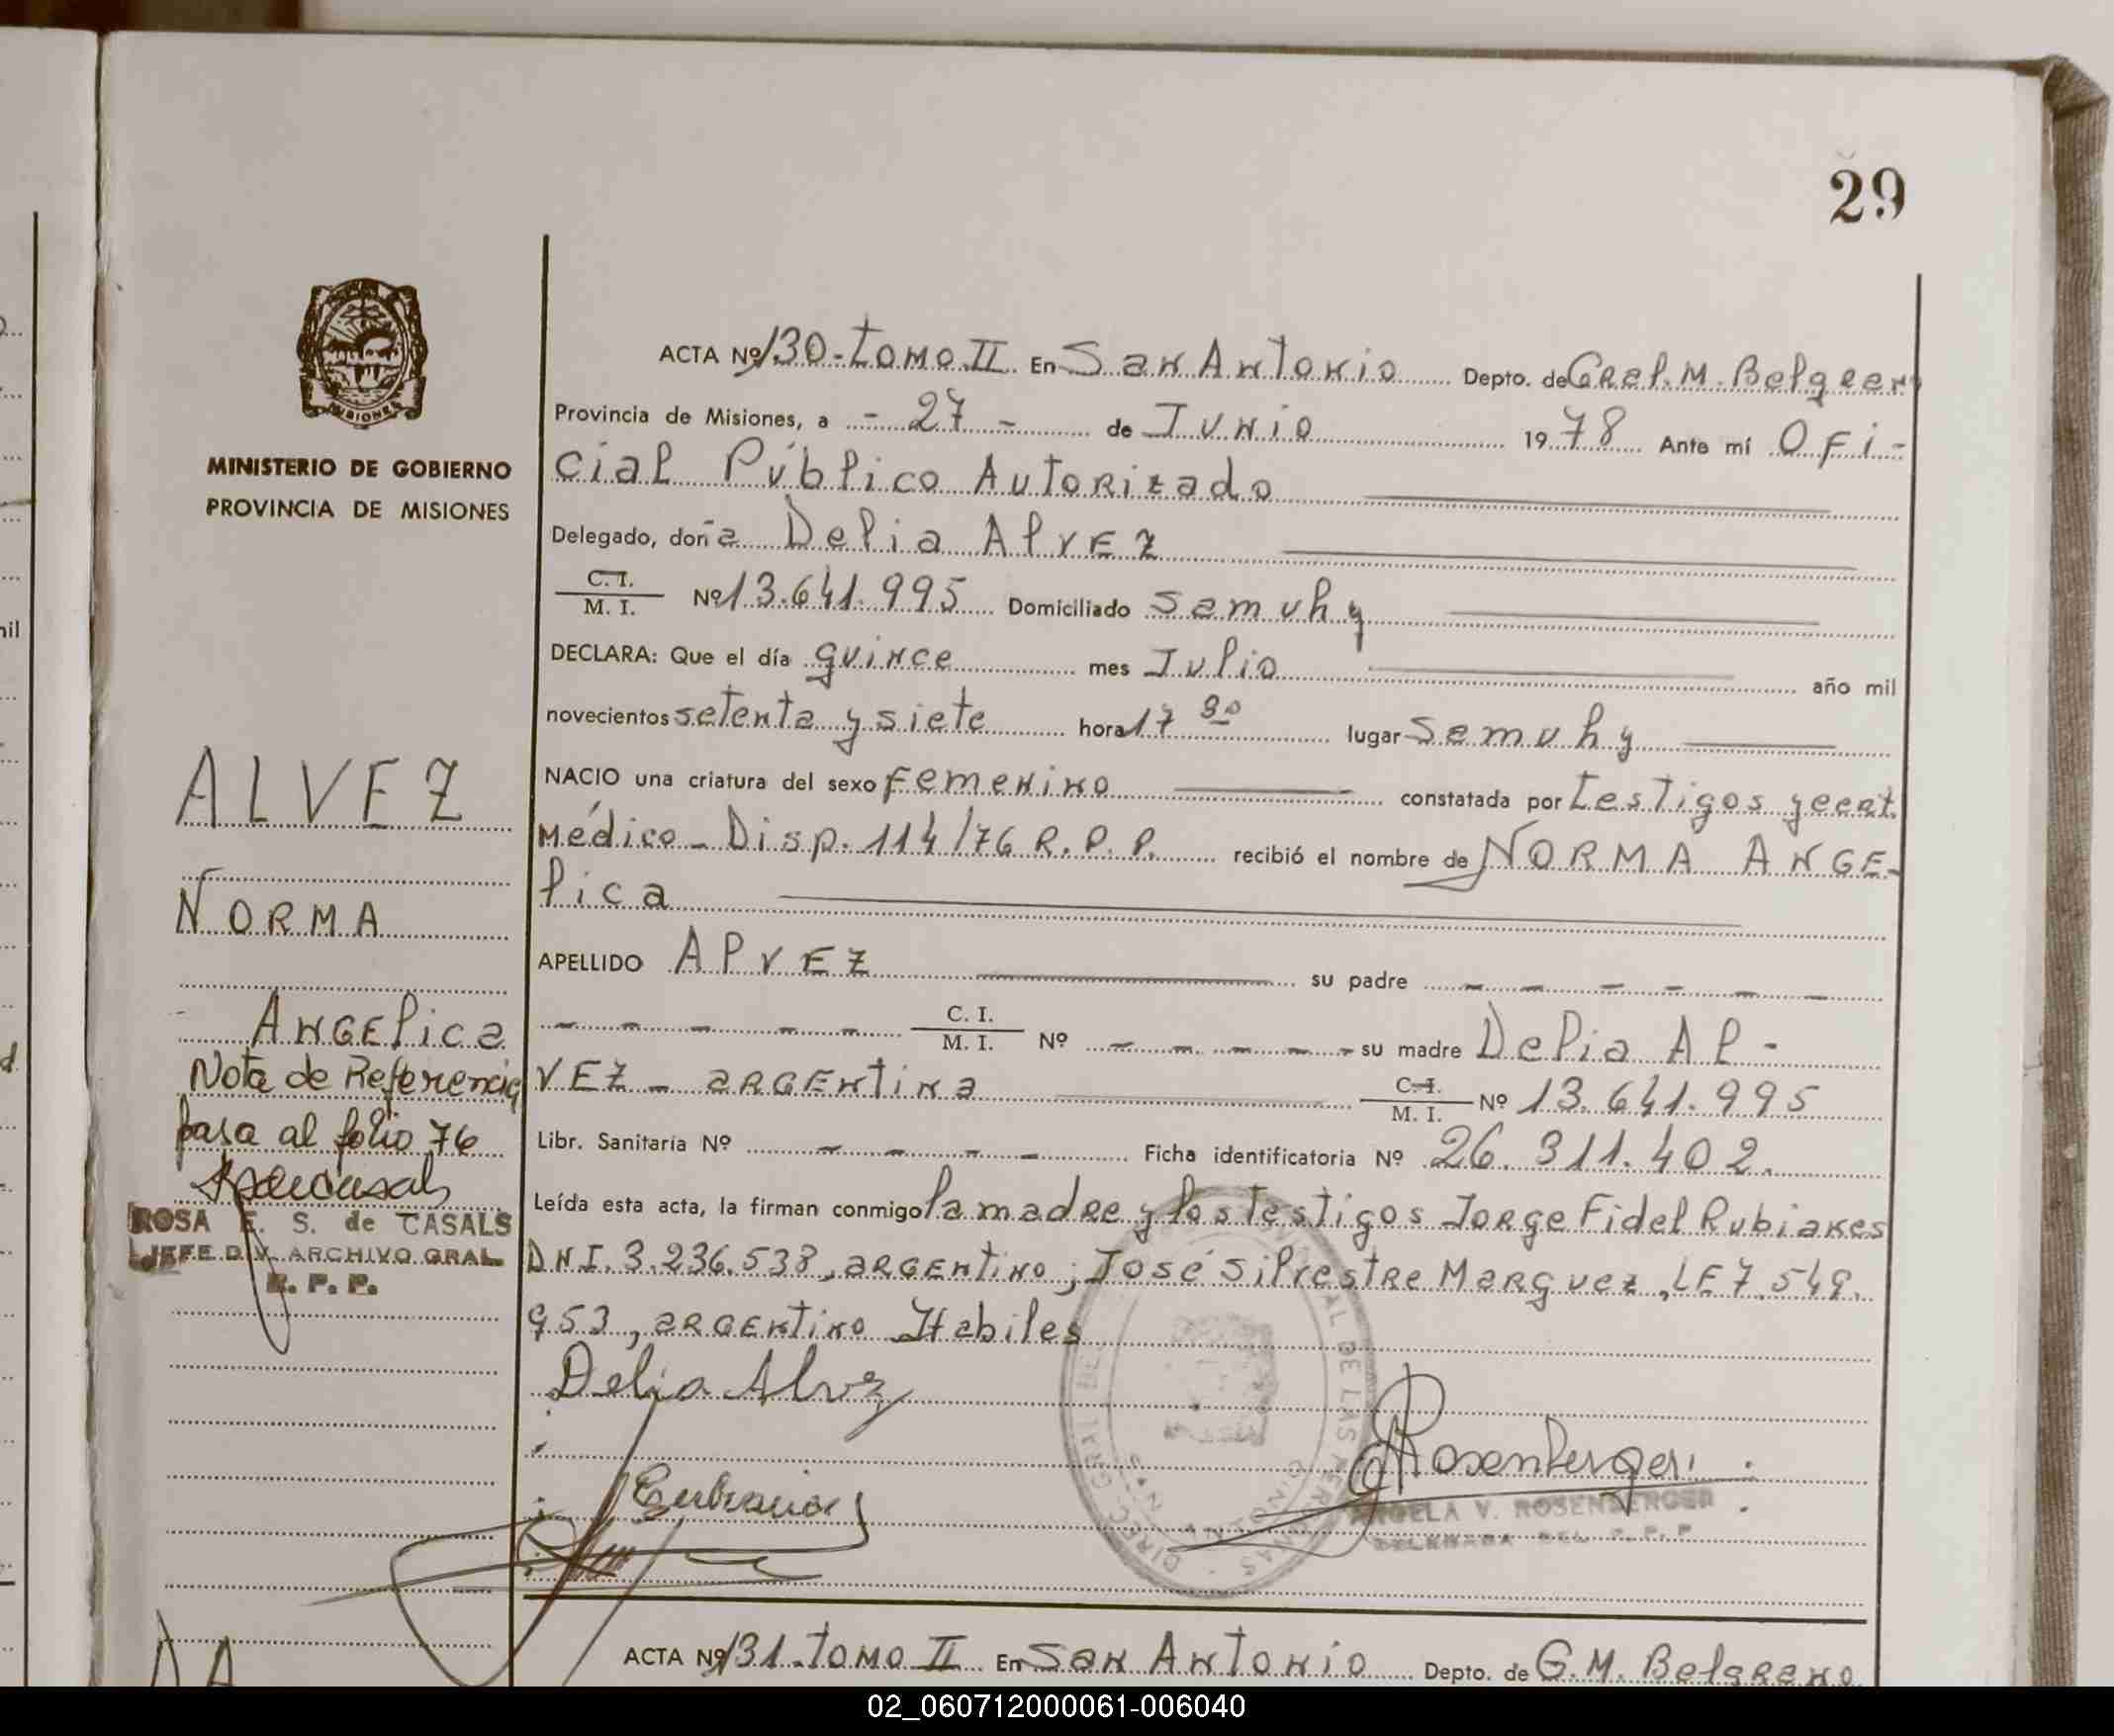 29
ACTA Nº 130-Tomo II En San Antonio Depto. de Gral. M. Belgran
Provincia de Misiones, a - 27 - de Junio 1978 Ante mí Ofi-
cial Público Autorizado
Delegado, doña Delia Alvez
C. I.
M. I. Nº 13.641.995 Domiciliado Samuhy
DECLARA: Que el día quince mes Julio año mil
novecientos setenta y siete hora 17 30 lugar Samuhy
NACIO una criatura del sexo Femenino constatada por testigos y cert.
Médico - Disp. 114/76 R.P.P. recibió el nombre de NORMA ANGE-
lica
APELLIDO Alvez su padre - - - - - -
- - - - - C. I.
M. I. Nº - - - - - su madre Delia Al-
VEZ - argentina C. I.
M. I. Nº 13.641.995
Libr. Sanitaria Nº - - - - Ficha identificatoria Nº 26.311.402.
Leída esta acta, la firman conmigo la madre y los testigos Jorge Fidel Rubianes
DNI. 3.236.538, argentino; José Silvestre Marquez, LE 7.549.
953, argentino Habiles
Delia Alvez
Rosenberger
ANGELA V. ROSENBERGER
DELEGADA DEL R.P.P.
MISIONES
MINISTERIO DE GOBIERNO
PROVINCIA DE MISIONES
ALVEZ
NORMA
ANGElica
Nota de Referencia
pasa al folio 76
ROSA E. S. de CASALS
JEFE DIV. ARCHIVO GRAL
R. P. P.
ACTA Nº 131-Tomo II En San Antonio Depto. de G.M. Belgrano
02_060712000061-006040